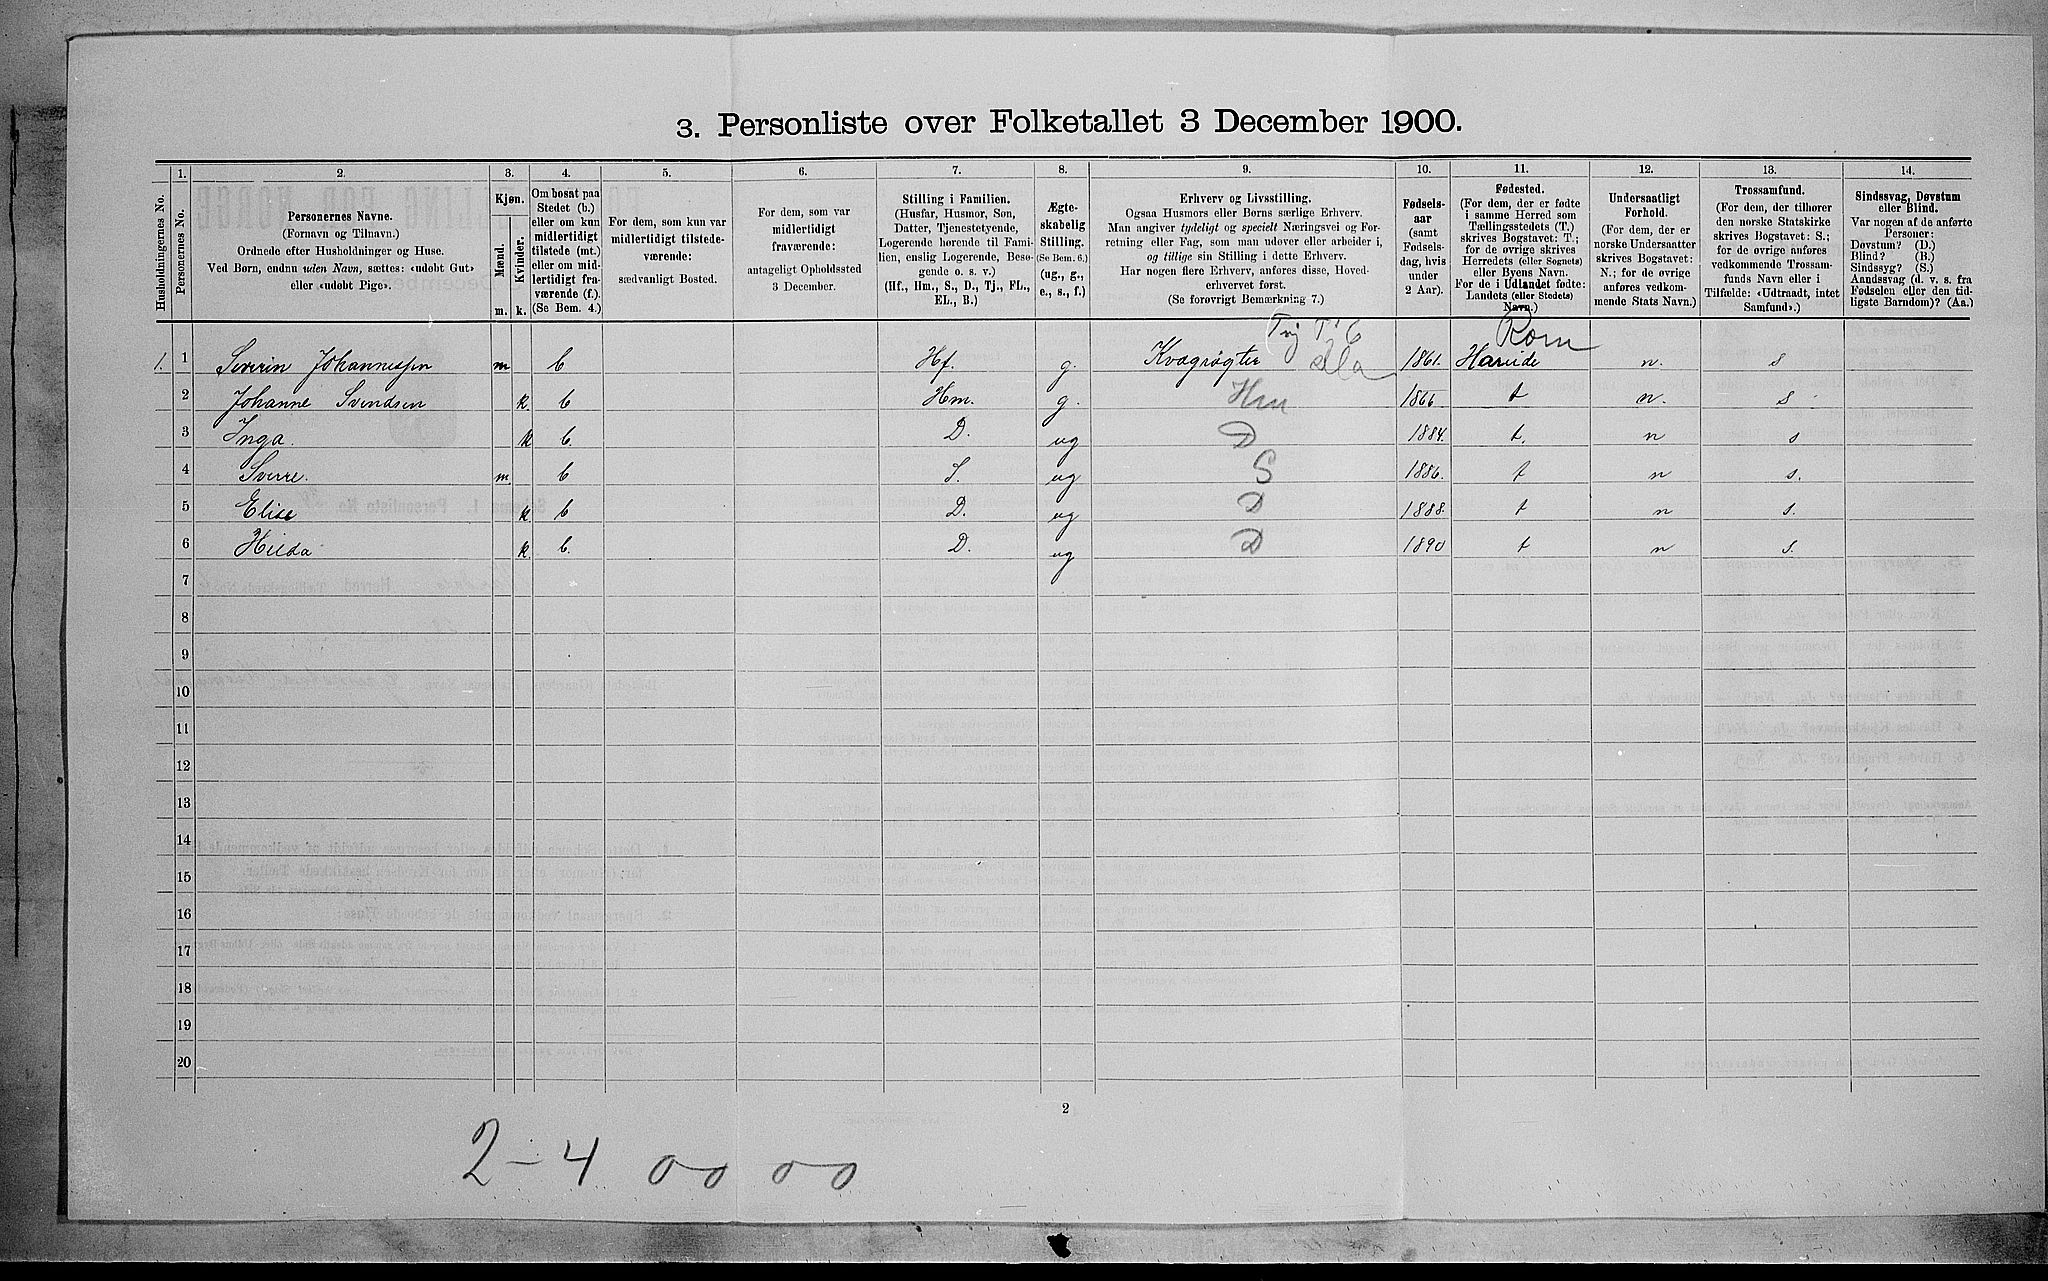 3. Personliste over Folketallet 3 December 1900.
1. 2. 3. 4. 5. 6. 7. 8. 9. 10. 11. 12. 13. 14.
Husholdningernes No.
Personernes No.
Personernes Navne.
(Fornavn og Tilnavn.)
Ordnede efter Husholdninger og Huse.
Ved Børn, endnu uden Navn, sættes: «udøbt Gut»
eller «udøbt Pige».
Kjøn.
Mænd.
Kvinder.
m. k.
Om bosat paa
Stedet (b.)
eller om kun
midlertidigt
tilstede (mt.)
eller om mid-
lertidigt fra-
værende (f.).
(Se Bem. 4.)
For dem, som kun var
midlertidigt tilstede-
værende:
sædvanligt Bosted.
For dem, som var
midlertidigt
fraværende:
antageligt Opholdssted
3 December.
Stilling i Familien.
(Husfar, Husmor, Søn,
Datter, Tjenestetyende,
Logerende hørende til Fami-
lien, enslig Logerende, Besø-
gende o. s. v.)
(Hf., Hm., S., D., Tj., FL.,
EL., B.)
Ægte-
skabelig
Stilling.
(Se Bem. 6.)
(ug., g.,
e., s., f.)
Erhverv og Livsstilling.
Ogsaa Husmors eller Børns særlige Erhverv.
Man angiver tydeligt og specielt Næringsvei og For-
retning eller Fag, som man udøver eller arbeider i,
og tillige sin Stilling i dette Erhverv.
Har nogen flere Erhverv, anføres disse, Hoved-
erhvervet først.
(Se forøvrigt Bemærkning 7.)
Fødsels-
aar
(samt
Fødsels-
dag, hvis
under
2 Aar).
Fødested.
(For dem, der er fødte
i samme Herred som
Tællingsstedets (T.)
skrives Bogstavet: T.;
for de øvrige skrives
Herredets (eller Sognets)
eller Byens Navn.
For de i Udlandet fødte:
Landets (eller Stedets)
Navn.)
Undersaatligt
Forhold.
(For dem, der er
norske Undersaatter
skrives Bogstavet:
N.; for de øvrige
anføres vedkom-
mende Stats Navn.)
Trossamfund.
(For dem, der tilhører
den norske Statskirke
skrives Bogstavet: S.;
for de øvrige anføres
vedkommende Trossam-
funds Navn eller i
Tilfælde: «Udtraadt, intet
Samfund».)
Sindssvag, Døvstum
eller Blind.
Var nogen af de anførte
Personer:
Døvstum? (D.)
Blind? (B.)
Sindssyg? (S.)
Aandssvag (d. v. s. fra
Fødselen eller den tid-
ligste Barndom)? (Aa.)
Rom
1. 1 Severin Johannessen m b Hf. g. Kvægrøgter 1861. Hareide n. s
2 Johanne Svendsen k. b Hm. g. Hm 1866 t n. s
3 Inga k b. D. ug D 1884. t. n s
4 Sverre. m. b S. ug S 1886. t n s.
5 Elise k. b D. ug D 1888. t n s.
6 Hilda k. b. D. ug D 1890 t n s.
7
8
9
10
11
12
13
14
15
16
17
18
19
20
2
2-4 00 00